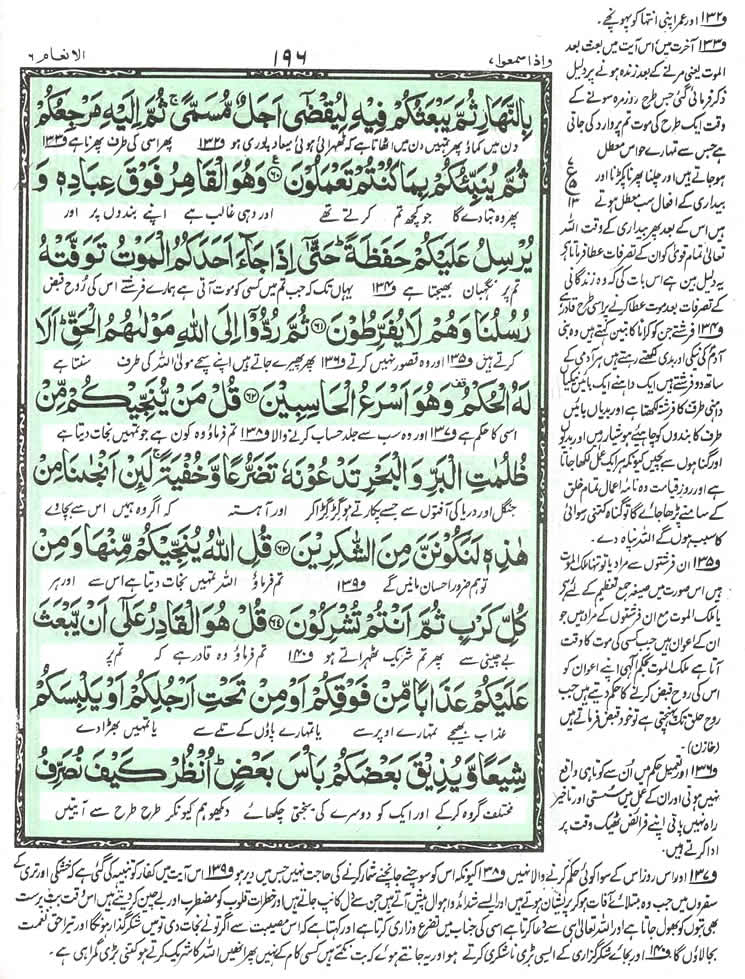 الانعام ٦
١٩٦
واذا سمعوا ٧
بِالنَّهَارِ ثُمَّ يَبْعَثُكُمْ فِيْهِ لِيُقْضٰٓى اَجَلٌ مُّسَمًّى ۚ ثُمَّ اِلَيْهِ مَرْجِعُكُمْ
دن میں کماؤ پھر تمہیں دن میں اٹھاتا ہے کہ ٹھہرائی ہوئی میعاد پوری ہو ف۱۳۲ پھر اسی کی طرف پھرنا ہے ف۱۳۳
ثُمَّ يُنَبِّئُكُمْ بِمَا كُنْتُمْ تَعْمَلُوْنَ ﴿۶۰﴾ وَهُوَ الْقَاهِرُ فَوْقَ عِبَادِهٖ وَ
پھر وہ بتا دے گا جو کچھ تم کرتے تھے اور وہی غالب ہے اپنے بندوں پر اور
يُرْسِلُ عَلَيْكُمْ حَفَظَةً ؕ حَتّٰٓى اِذَا جَآءَ اَحَدَكُمُ الْمَوْتُ تَوَفَّتْهُ
تم پر نگہبان بھیجتا ہے ف۱۳۴ یہاں تک کہ جب تم میں کسی کو موت آتی ہے ہمارے فرشتے اس کی روح قبض
رُسُلُنَا وَهُمْ لَا يُفَرِّطُوْنَ ﴿۶۱﴾ ثُمَّ رُدُّوْٓا اِلَى اللّٰهِ مَوْلٰىهُمُ الْحَقِّ ؕ اَلَا
کرتے ہیں ف۱۳۵ اور وہ قصور نہیں کرتے ف۱۳۶ پھر پھیرے جاتے ہیں اپنے سچے مولیٰ اللہ کی طرف سنتا ہے
لَهُ الْحُكْمُ وَهُوَ اَسْرَعُ الْحَاسِبِيْنَ ﴿۶۲﴾ قُلْ مَنْ يُّنَجِّيْكُمْ مِّنْ
اسی کا حکم ہے ف۱۳۷ اور وہ سب سے جلد حساب کرنے والا ف۱۳۸ تم فرماؤ وہ کون ہے جو تمہیں نجات دیتا ہے
ظُلُمٰتِ الْبَرِّ وَالْبَحْرِ تَدْعُوْنَهٗ تَضَرُّعًا وَّخُفْيَةً ۚ لَئِنْ اَنْجٰىنَا مِنْ
جنگل اور دریا کی آفتوں سے جسے پکارتے ہو گڑگڑا کر اور آہستہ کہ اگر وہ ہمیں اس سے بچاوے
هٰذِهٖ لَنَكُوْنَنَّ مِنَ الشّٰكِرِيْنَ ﴿۶۳﴾ قُلِ اللّٰهُ يُنَجِّيْكُمْ مِّنْهَا وَمِنْ
تو ہم ضرور احسان مانیں گے ف۱۳۹ تم فرماؤ اللہ تمہیں نجات دیتا ہے اس سے اور ہر
كُلِّ كَرْبٍ ثُمَّ اَنْتُمْ تُشْرِكُوْنَ ﴿۶۴﴾ قُلْ هُوَ الْقَادِرُ عَلٰٓى اَنْ يَّبْعَثَ
بے چینی سے پھر تم شریک ٹھہراتے ہو ف۱۴۰ تم فرماؤ وہ قادر ہے کہ تم پر
عَلَيْكُمْ عَذَابًا مِّنْ فَوْقِكُمْ اَوْ مِنْ تَحْتِ اَرْجُلِكُمْ اَوْ يَلْبِسَكُمْ
عذاب بھیجے تمہارے اوپر سے یا تمہارے پاؤں کے تلے سے یا تمہیں بھڑا دے
شِيَعًا وَّيُذِيْقَ بَعْضَكُمْ بَاْسَ بَعْضٍ ؕ اُنْظُرْ كَيْفَ نُصَرِّفُ
مختلف گروہ کر کے اور ایک کو دوسرے کی سختی چکھائے دیکھو ہم کیونکر طرح طرح سے آیتیں
ف۱۳۲ اور عمر اپنی انتہا کو پہونچے۔
ف۱۳۳ آخرت میں اس آیت میں بعث بعد
الموت یعنی مرنے کے بعد زندہ ہونے پر دلیل
ذکر فرمائی گئی جس طرح روزمرہ سونے کے
وقت ایک طرح کی موت تم پر وارد کی جاتی
ہے جس سے تمہارے حواس معطل
ہو جاتے ہیں اور چلنا پھرنا پکڑنا اور
بیداری کے افعال سب معطل ہوتے
ہیں اس کے بعد پھر بیداری کے وقت اللہ
تعالیٰ تمام قویٰ کو ان کے تصرفات عطا فرماتا ہے
یہ دلیل بین ہے اس بات کی کہ وہ زندگانی
کے تصرفات بعد موت عطا کرنے پر اسی طرح قادر ہے
ف۱۳۴ فرشتے جن کو کراماً کاتبین کہتے ہیں وہ بنی
آدم کی نیکی اور بدی لکھتے رہتے ہیں ہر آدمی کے
ساتھ دو فرشتے ہیں ایک داہنے ایک بائیں نیکیاں
داہنی طرف کا فرشتہ لکھتا ہے اور بدیاں بائیں
طرف کا بندوں کو چاہیئے ہوشیار رہیں اور بدیوں
اور گناہوں سے بچیں کیونکہ ہر ایک عمل لکھا جاتا
ہے اور روز قیامت وہ نامۂ اعمال تمام خلق
کے سامنے پڑھا جائے گا تو گناہ کتنی رسوائی
کا سبب ہوں گے اللہ پناہ دے۔
ف۱۳۵ ان فرشتوں سے مراد یا تو تنہا ملک الموت
ہیں اس صورت میں صیغہ جمع تعظیم کے لئے ہے
یا ملک الموت مع ان فرشتوں کے مراد ہیں جو
ان کے اعوان ہیں جب کسی کی موت کا وقت
آتا ہے ملک الموت بحکم الٰہی اپنے اعوان کو
اس کی روح قبض کرنے کا حکم دیتے ہیں جب
روح حلق تک پہنچتی ہے تو خود قبض فرماتے ہیں
(خازن)۔
ف۱۳۶ اور تعمیل حکم میں ان سے کوتاہی واقع
نہیں ہوتی اور ان کے عمل میں سستی اور تاخیر
راہ نہیں پاتی اپنے فرائض ٹھیک وقت پر
ادا کرتے ہیں۔
ف۱۳۷ اور اس روز اس کے سوا کوئی حکم کرنے والا نہیں ف۱۳۸ کیونکہ اس کو سوچنے جانچنے شمار کرنے کی حاجت نہیں جس میں دیر ہو ف۱۳۹ اس آیت میں کفار کو تنبیہ کی گئی ہے کہ خشکی اور تری کے
سفروں میں جب وہ مبتلائے آفات ہو کر پریشان ہوتے ہیں اور ایسے شدائد و اہوال پیش آتے ہیں جن سے دل کانپ جاتے ہیں اور خطرات قلوب کو مضطرب اور بے چین کر دیتے ہیں اس وقت بت پرست
بھی بتوں کو بھول جاتا ہے اور اللہ تعالیٰ ہی سے دعا کرتا ہے اسی کی جناب میں تضرع و زاری کرتا ہے اور کہتا ہے کہ اس مصیبت سے اگر تو نے نجات دی تو میں شکر گزار ہوں گا اور تیرا حق نعمت
بجا لاؤں گا ف۱۴۰ اور بجائے شکر گزاری کے ایسی بڑی ناشکری کرتے ہو اور یہ جانتے ہوئے کہ بت نکمے ہیں کسی کام کے نہیں پھر انھیں اللہ کا شریک کرتے ہو کتنی بڑی گمراہی ہے۔